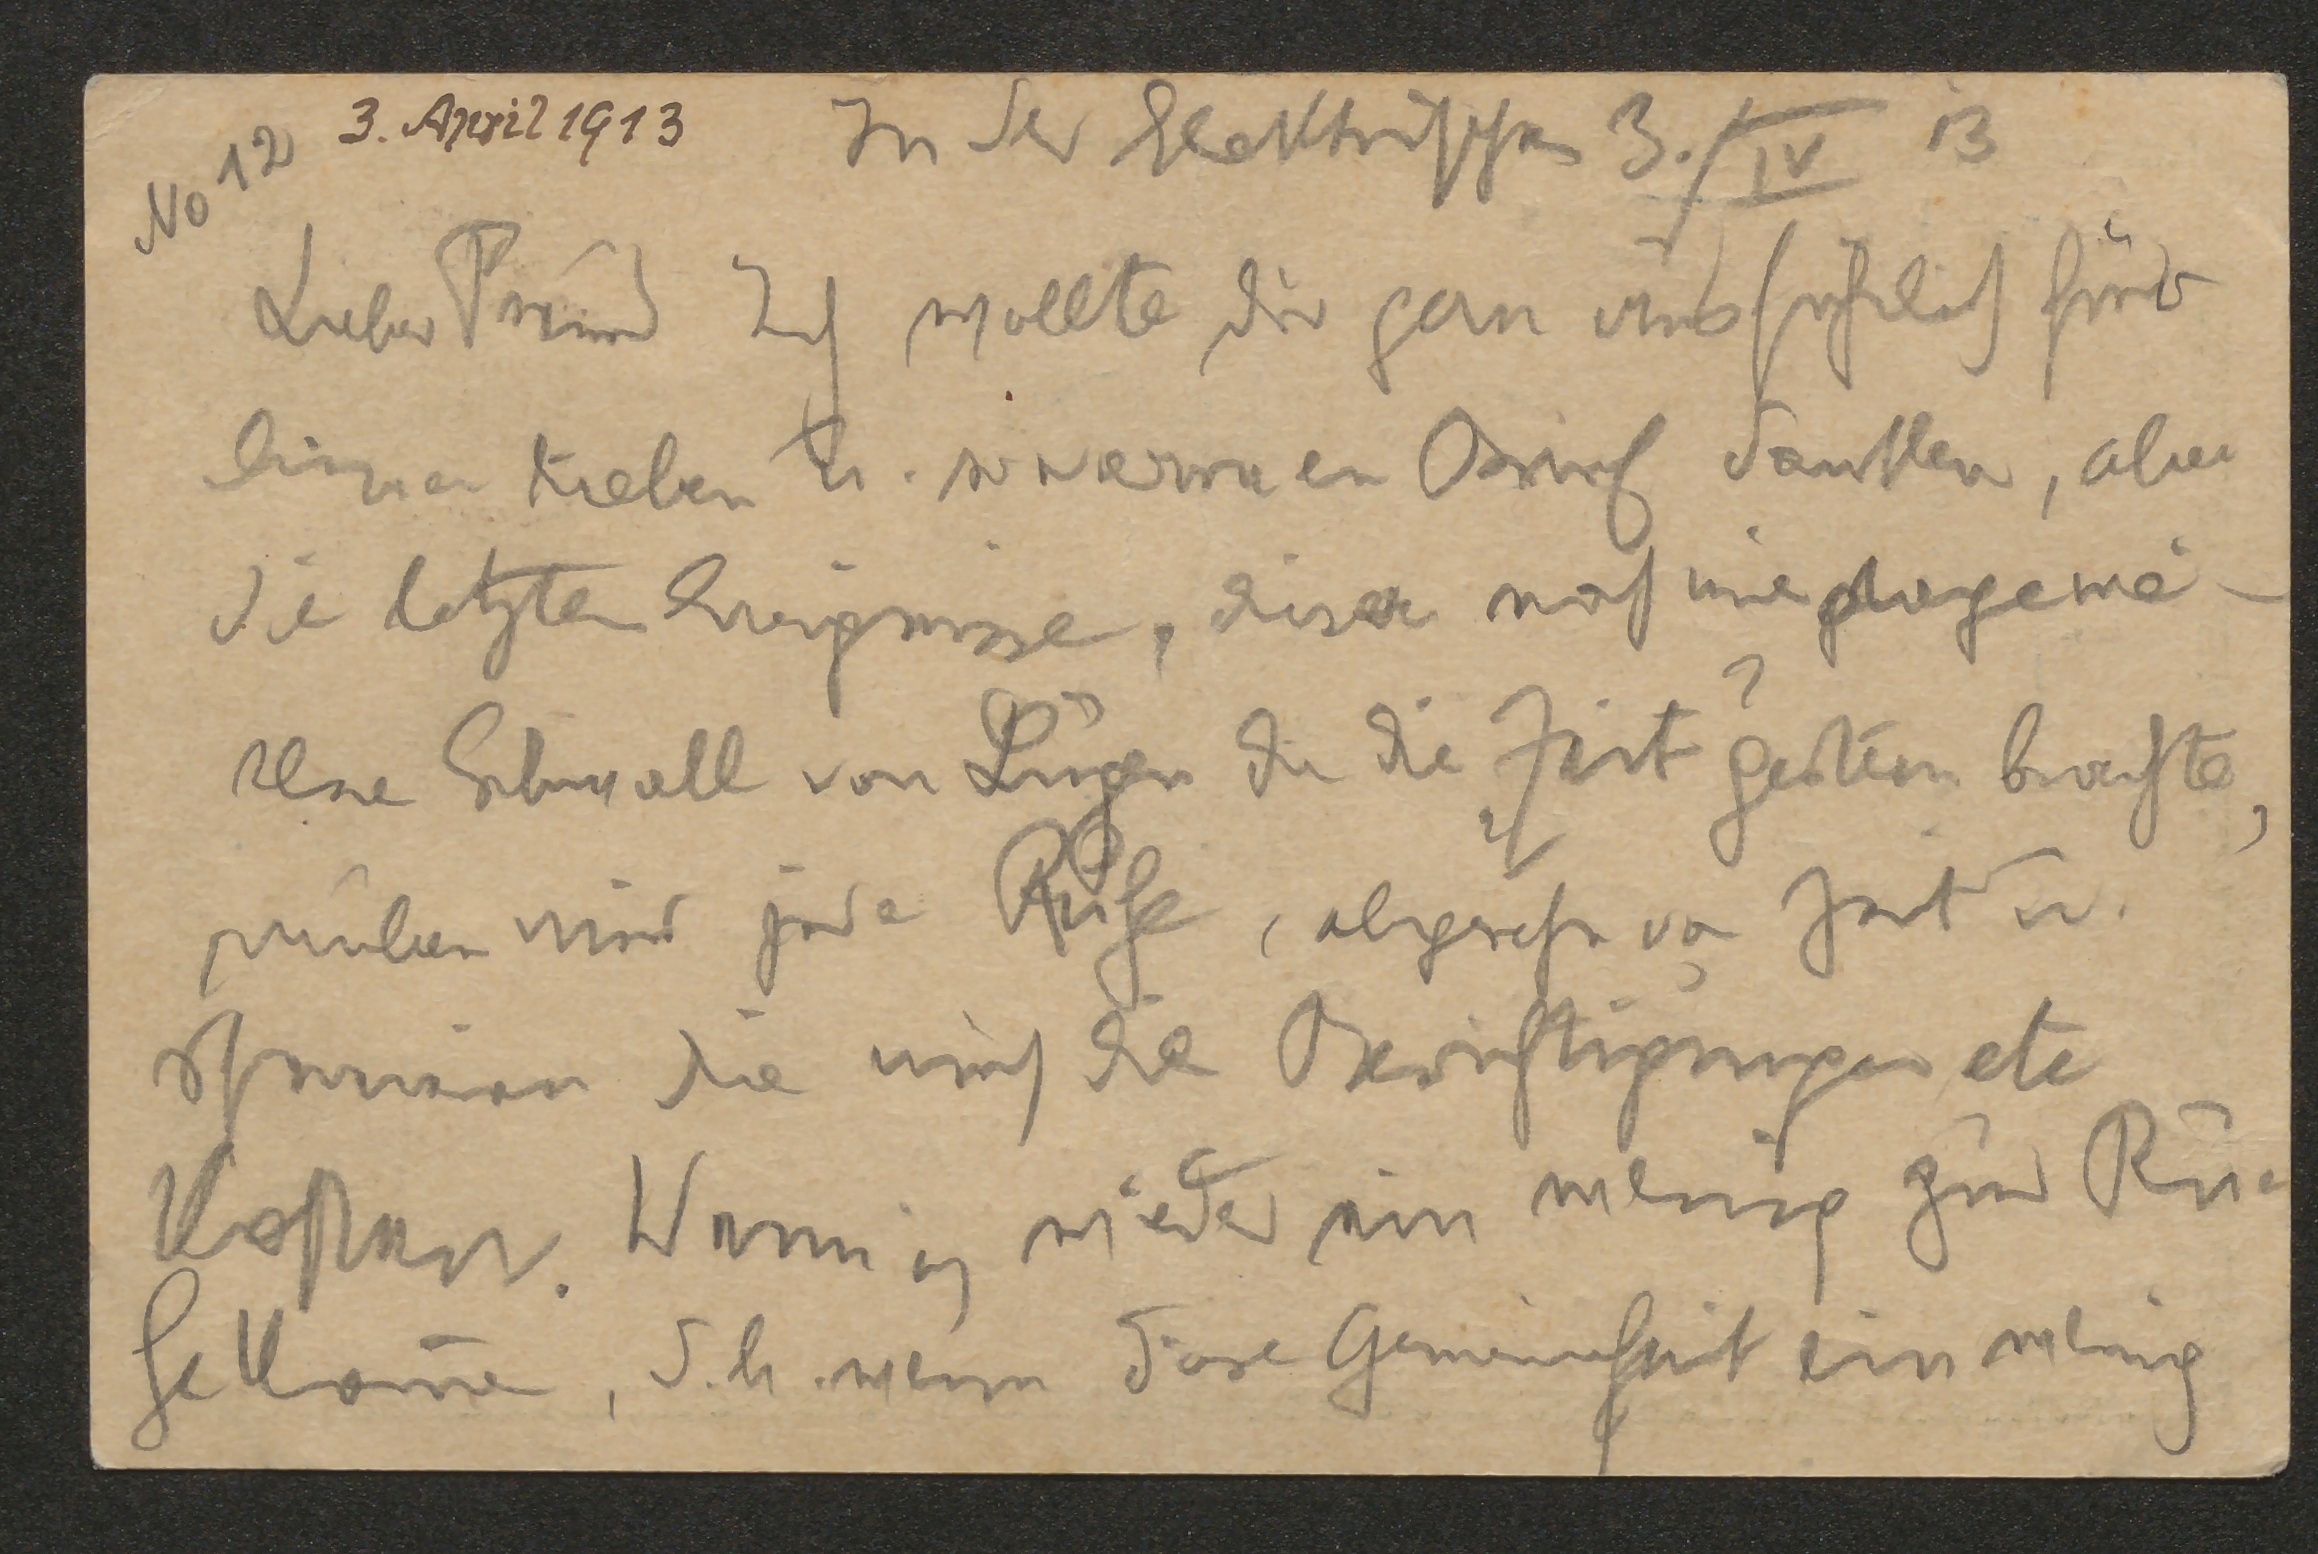 No 12
3. April 1913
In der Elektrischen 3./IV 13
Lieber Freund Ich wollte dir gern ausführlich für
deinen lieben u. warmen Brief danken, aber
die letzten Ereignisse, dieser noch nie dagewe-
sene Schwall von Lügen den die „Zeit" gestern brachte,
rauben mir jede Ruhe, abgesehen von Zeit u.
die mich die Berichtigungen etc
kosten. Wenn ich wieder ein wenig zur Ru-
he komme, d.h. wenn diese Gemeinheit ein wenig